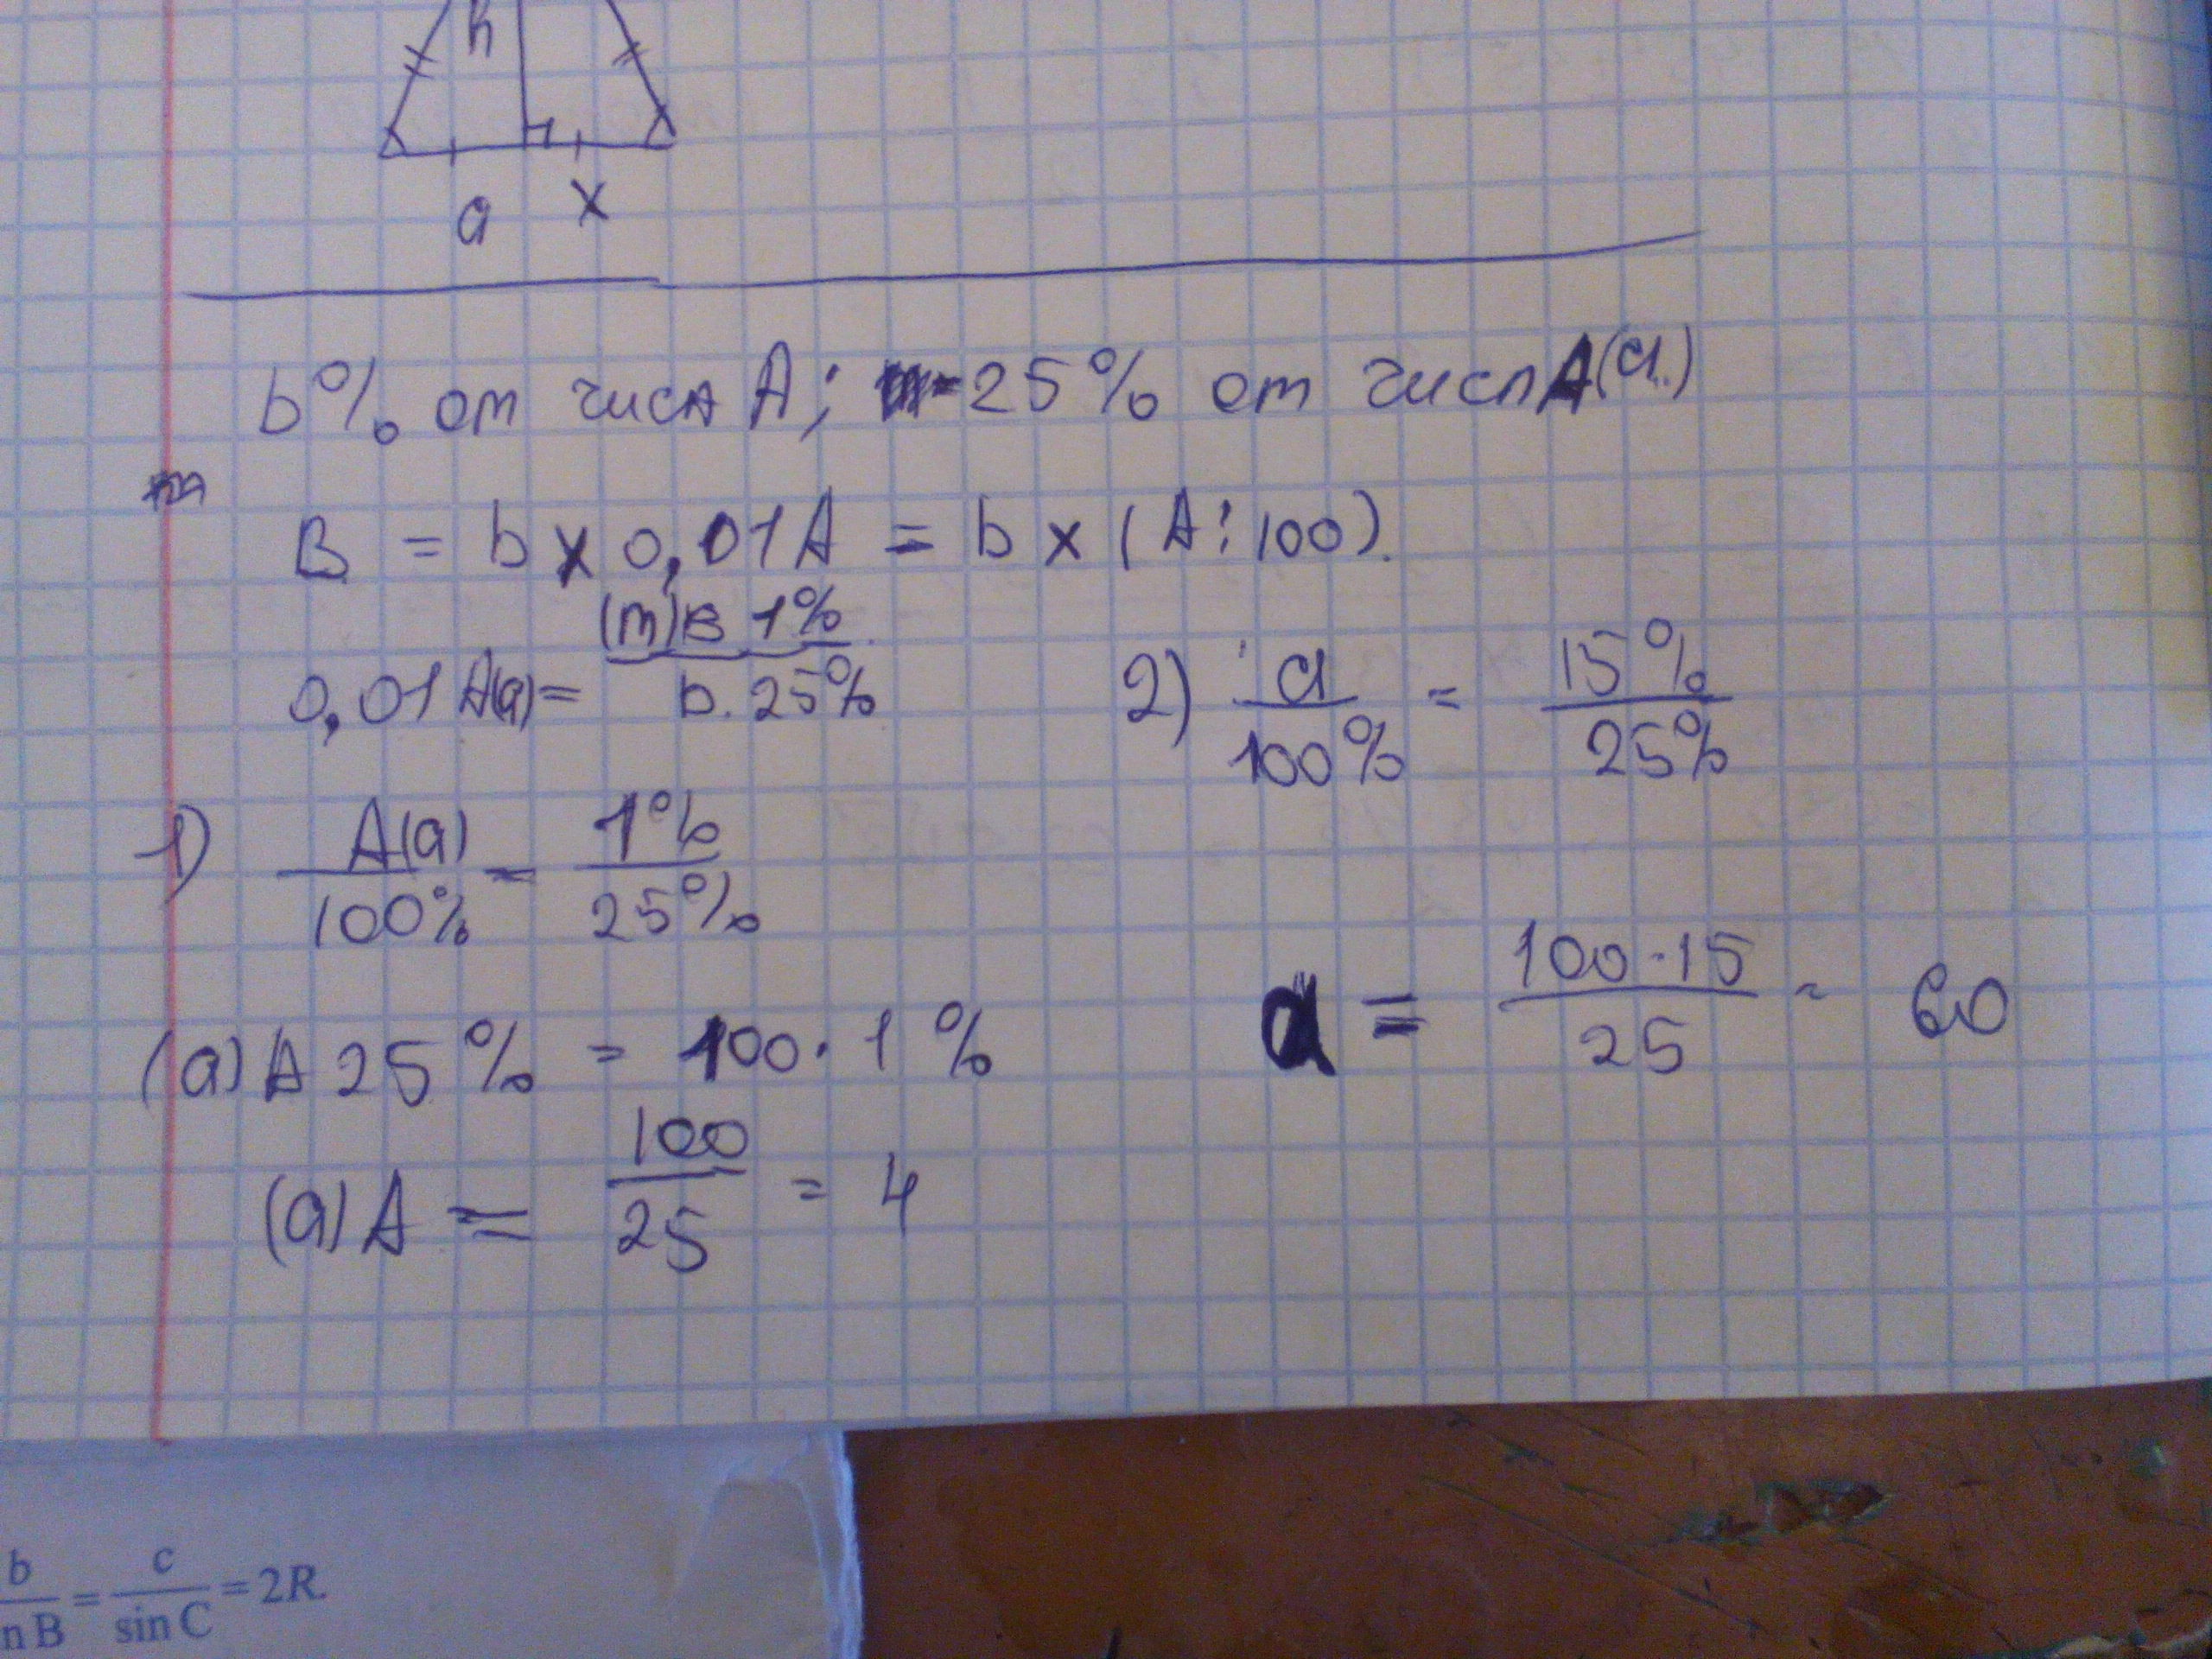 h
a x
b% от числа A; 25% от числА(a)
B = b x 0,01A = b x (A:100).
0,01 A(a) = (m)B 1% / b. 25%
2) a / 100% = 15% / 25%
1) A(a) / 100% = 1% / 25%
a = 100·15 / 25 = 60
(a)A 25% = 100·1%
(a)A = 100 / 25 = 4
b / nB = c / sin C = 2R.